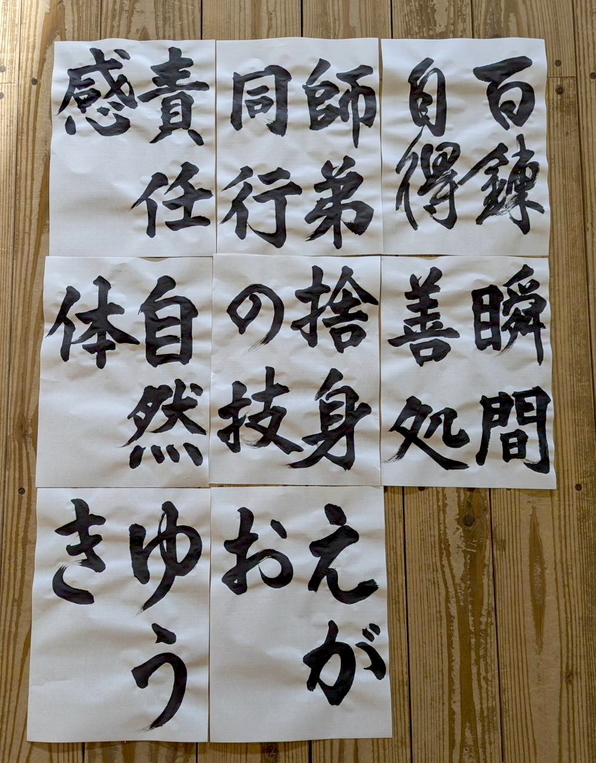 百錬
自得
師弟
同行
責任
感
瞬間
善処
捨身
の技
自然
体
えが
お
ゆう
き